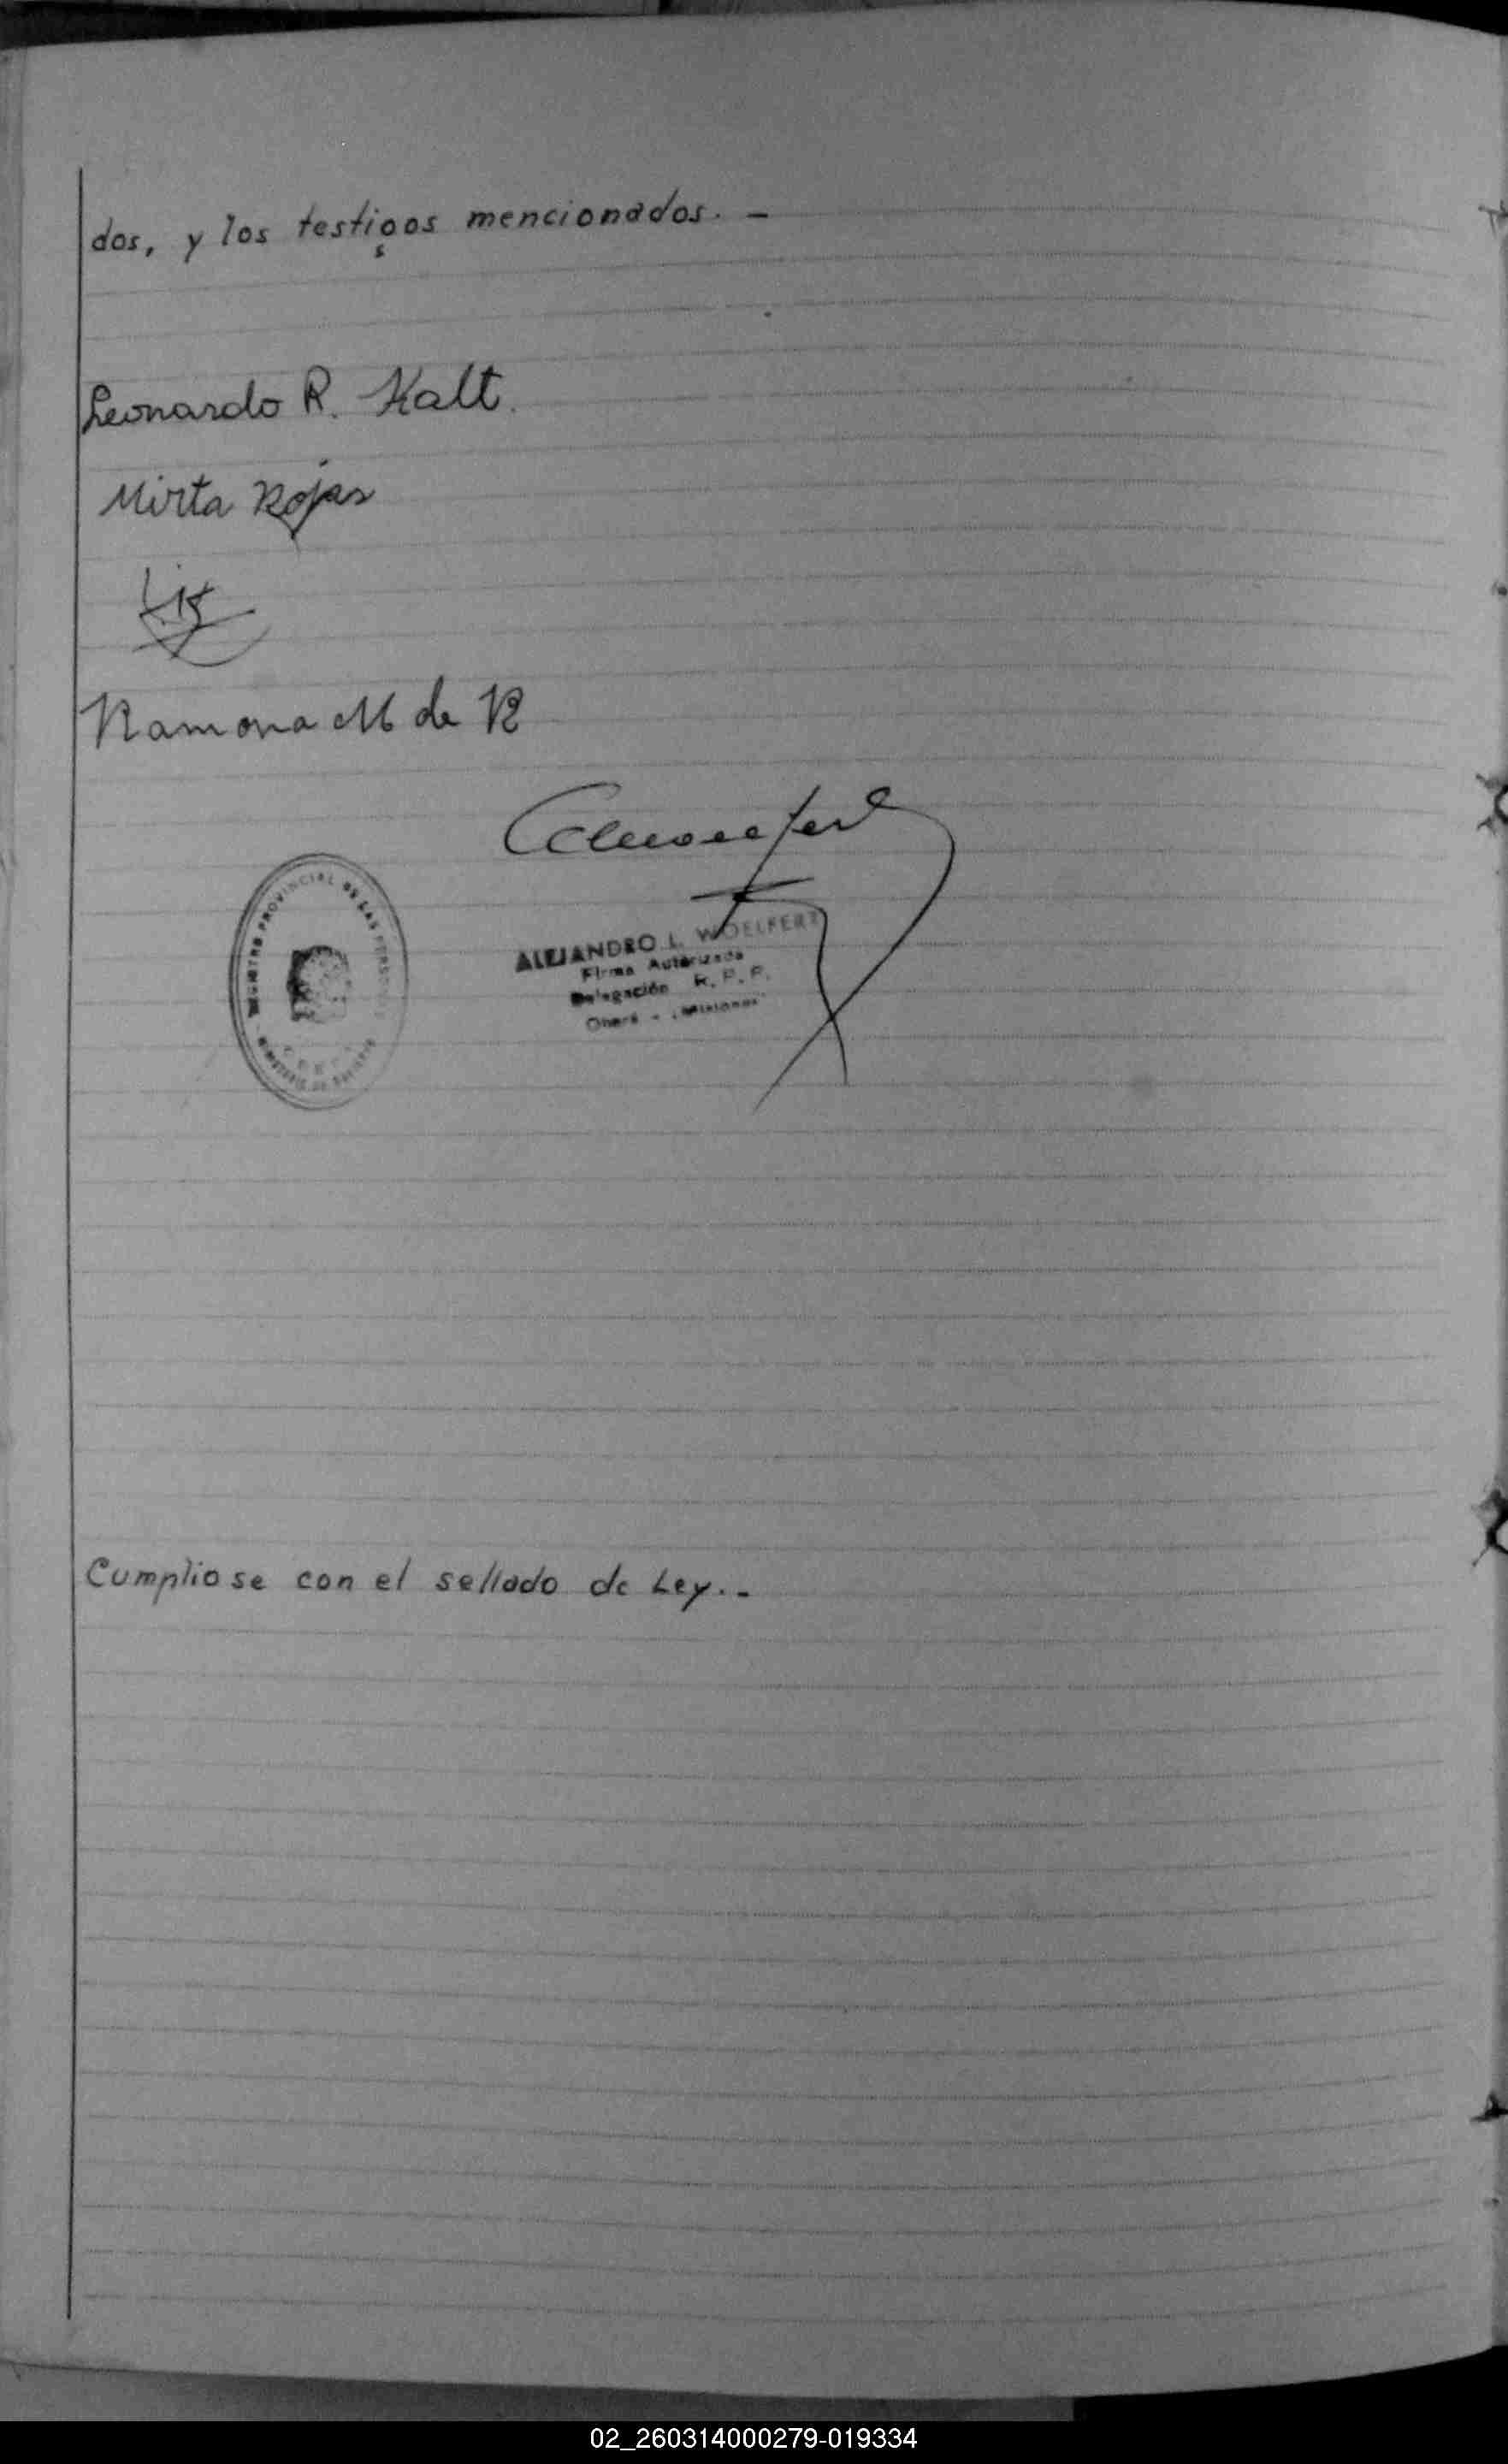 dos, y los testigos mencionados. —
Leonardo R. Kalt.
Mirta Rojas
Ramona M de R
REGISTRO PROVINCIAL DE LAS PERSONAS
ALEJANDRO L. WOELFERT
Firma Autorizada
Delegación R. P. P.
Oberá - Misiones
Cumpliose con el sellado de Ley. -
02_260314000279-019334